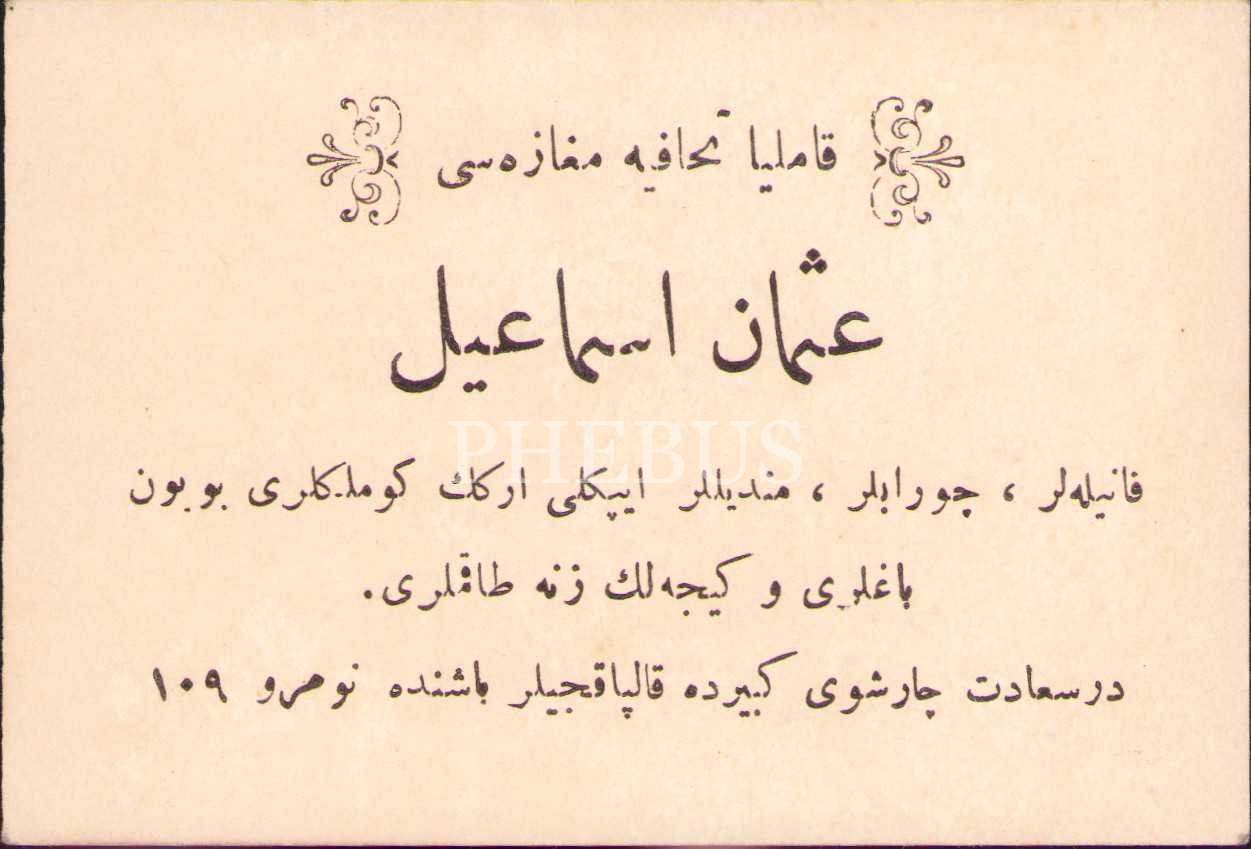 قاملیا تحافیه مغازه‌سی
عثمان اسماعیل
PHEBUS
فانیله‌لر ، چورابلر ، مندیللر ایپکلی ارکك کوملکلری بویون
باغلری و کیجه‌لك زنه طاقملری.
درسعادت چارشوی کبیرده قالپاقجیلر باشنده نومرو ۱۰۹